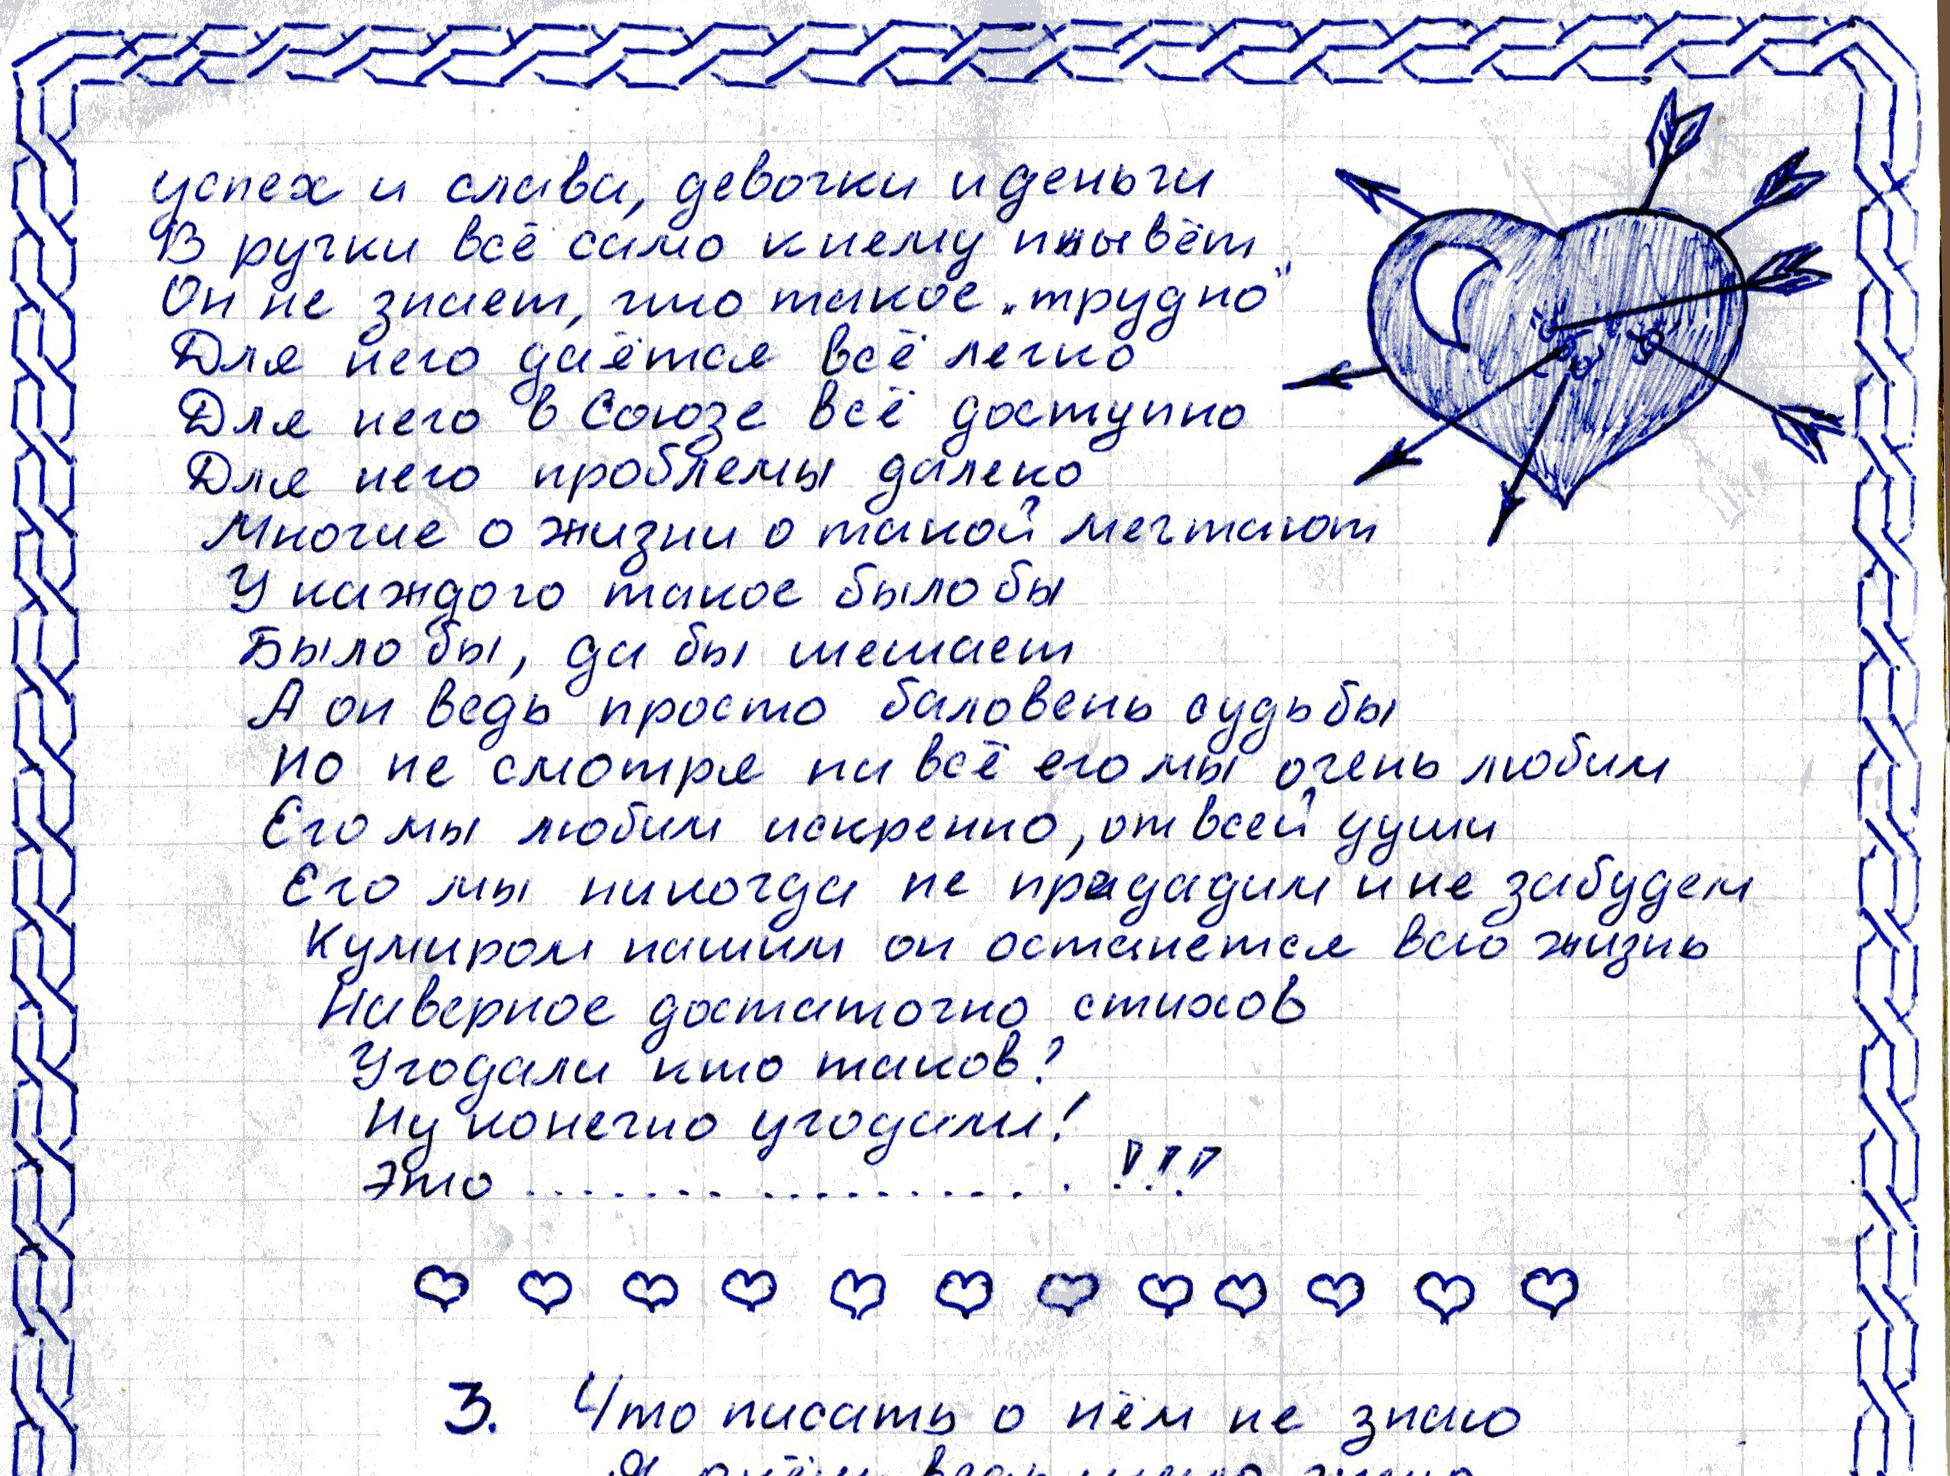 успех и слава, девочки и деньги
В ручки всё само к нему плывёт
Он не знает, что такое „трудно"
Для него даётся всё легко
Для него в Союзе всё доступно
Для него проблемы далеко
Многие о жизни о такой мечтают
У каждого такое было бы
Было бы, да бы мешает
А он ведь просто баловень судьбы
Но не смотря на всё его мы очень любим
Его мы любим искренно, от всей души
Его мы никогда не прададим и не забудем
Кумиром нашим он останется всю жизнь
Наверное достаточно стихов
Угодали кто таков?
Ну конечно угодали!
Это ....................!!!
3. Что писать о нём не знаю